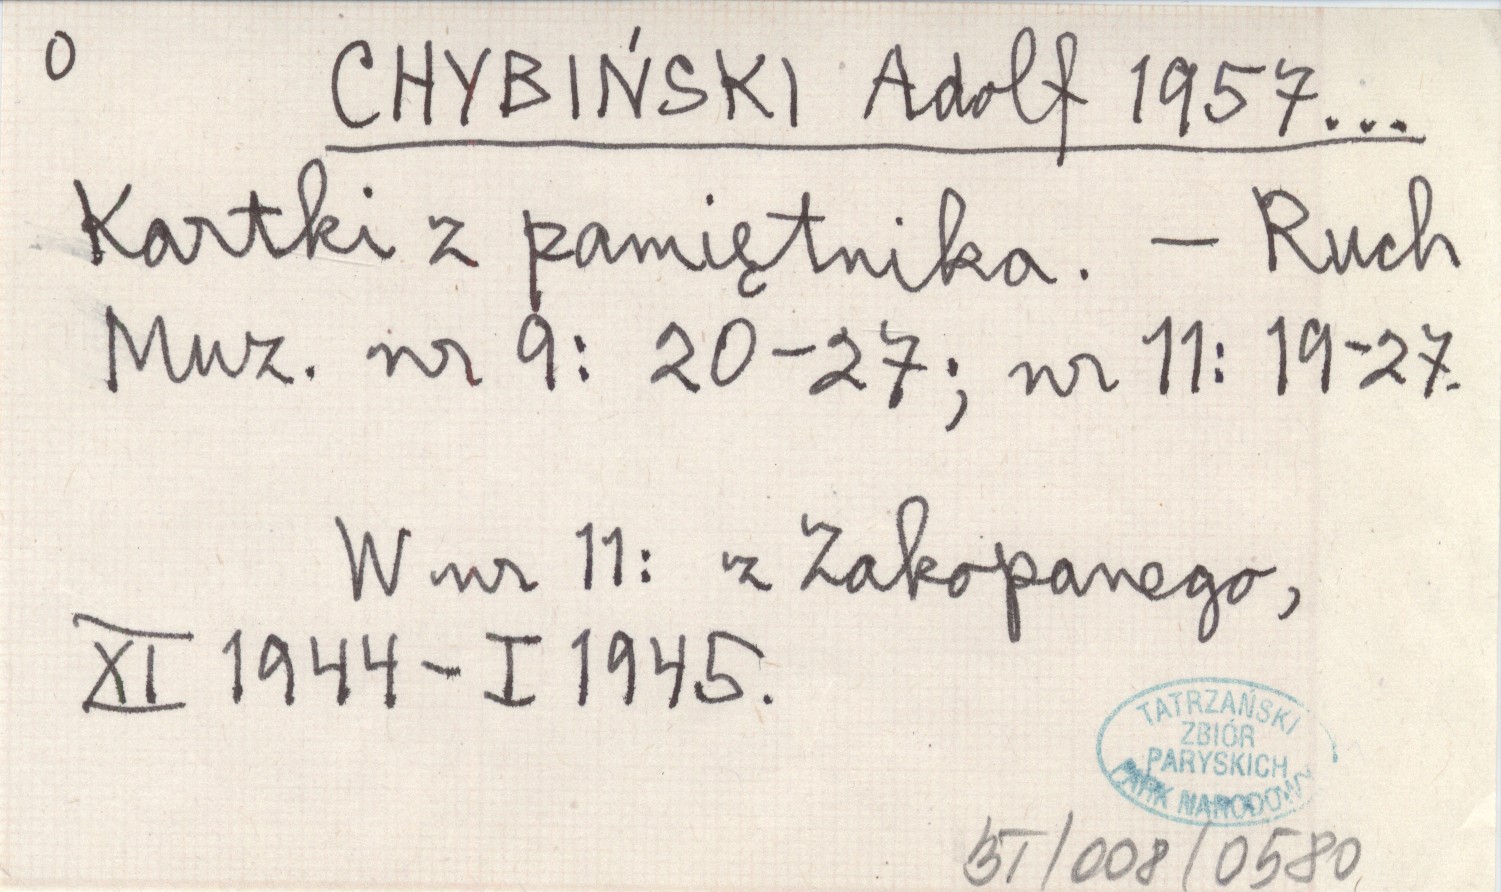 O
CHYBIŃSKI Adolf 1957...
Kartki z pamiętnika. – Ruch
Muz. nr 9: 20-27; nr 11: 19-27.
W nr 11: z Zakopanego,
XI 1944 - I 1945.
TATRZAŃSKI
ZBIÓR
PARYSKICH
PARK NARODOWY
BT/008/0580